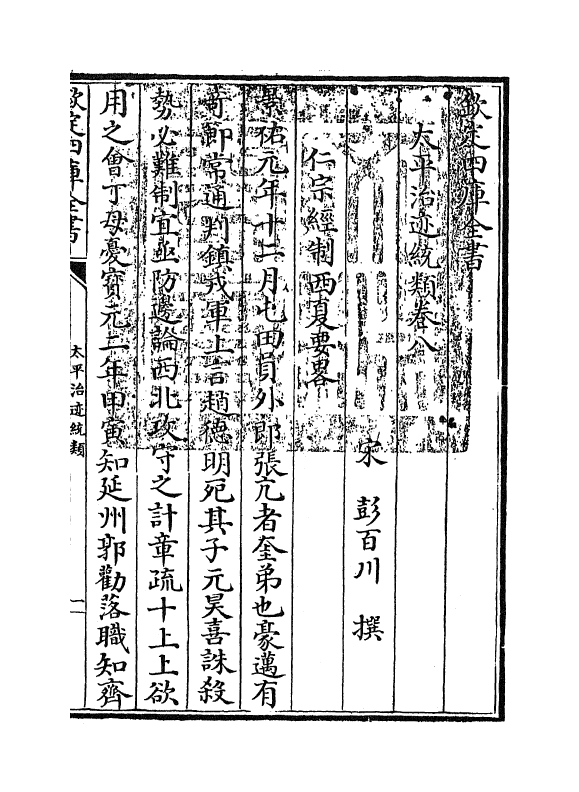 欽定四庫全書
太平治迹統類卷八
宋 彭百川 撰
仁宗經制西夏要畧
景祐元年十二月屯田員外郎張亢者奎弟也豪邁有
竒節常通判鎮戎軍上言趙德明死其子元昊喜誅殺
勢必難制宜亟防邊論西北攻守之計章疏十上上欲
用之會丁母憂寳元二年甲寅知延州郭勸落職知齊
欽定四庫全書
太平治迹統類
一